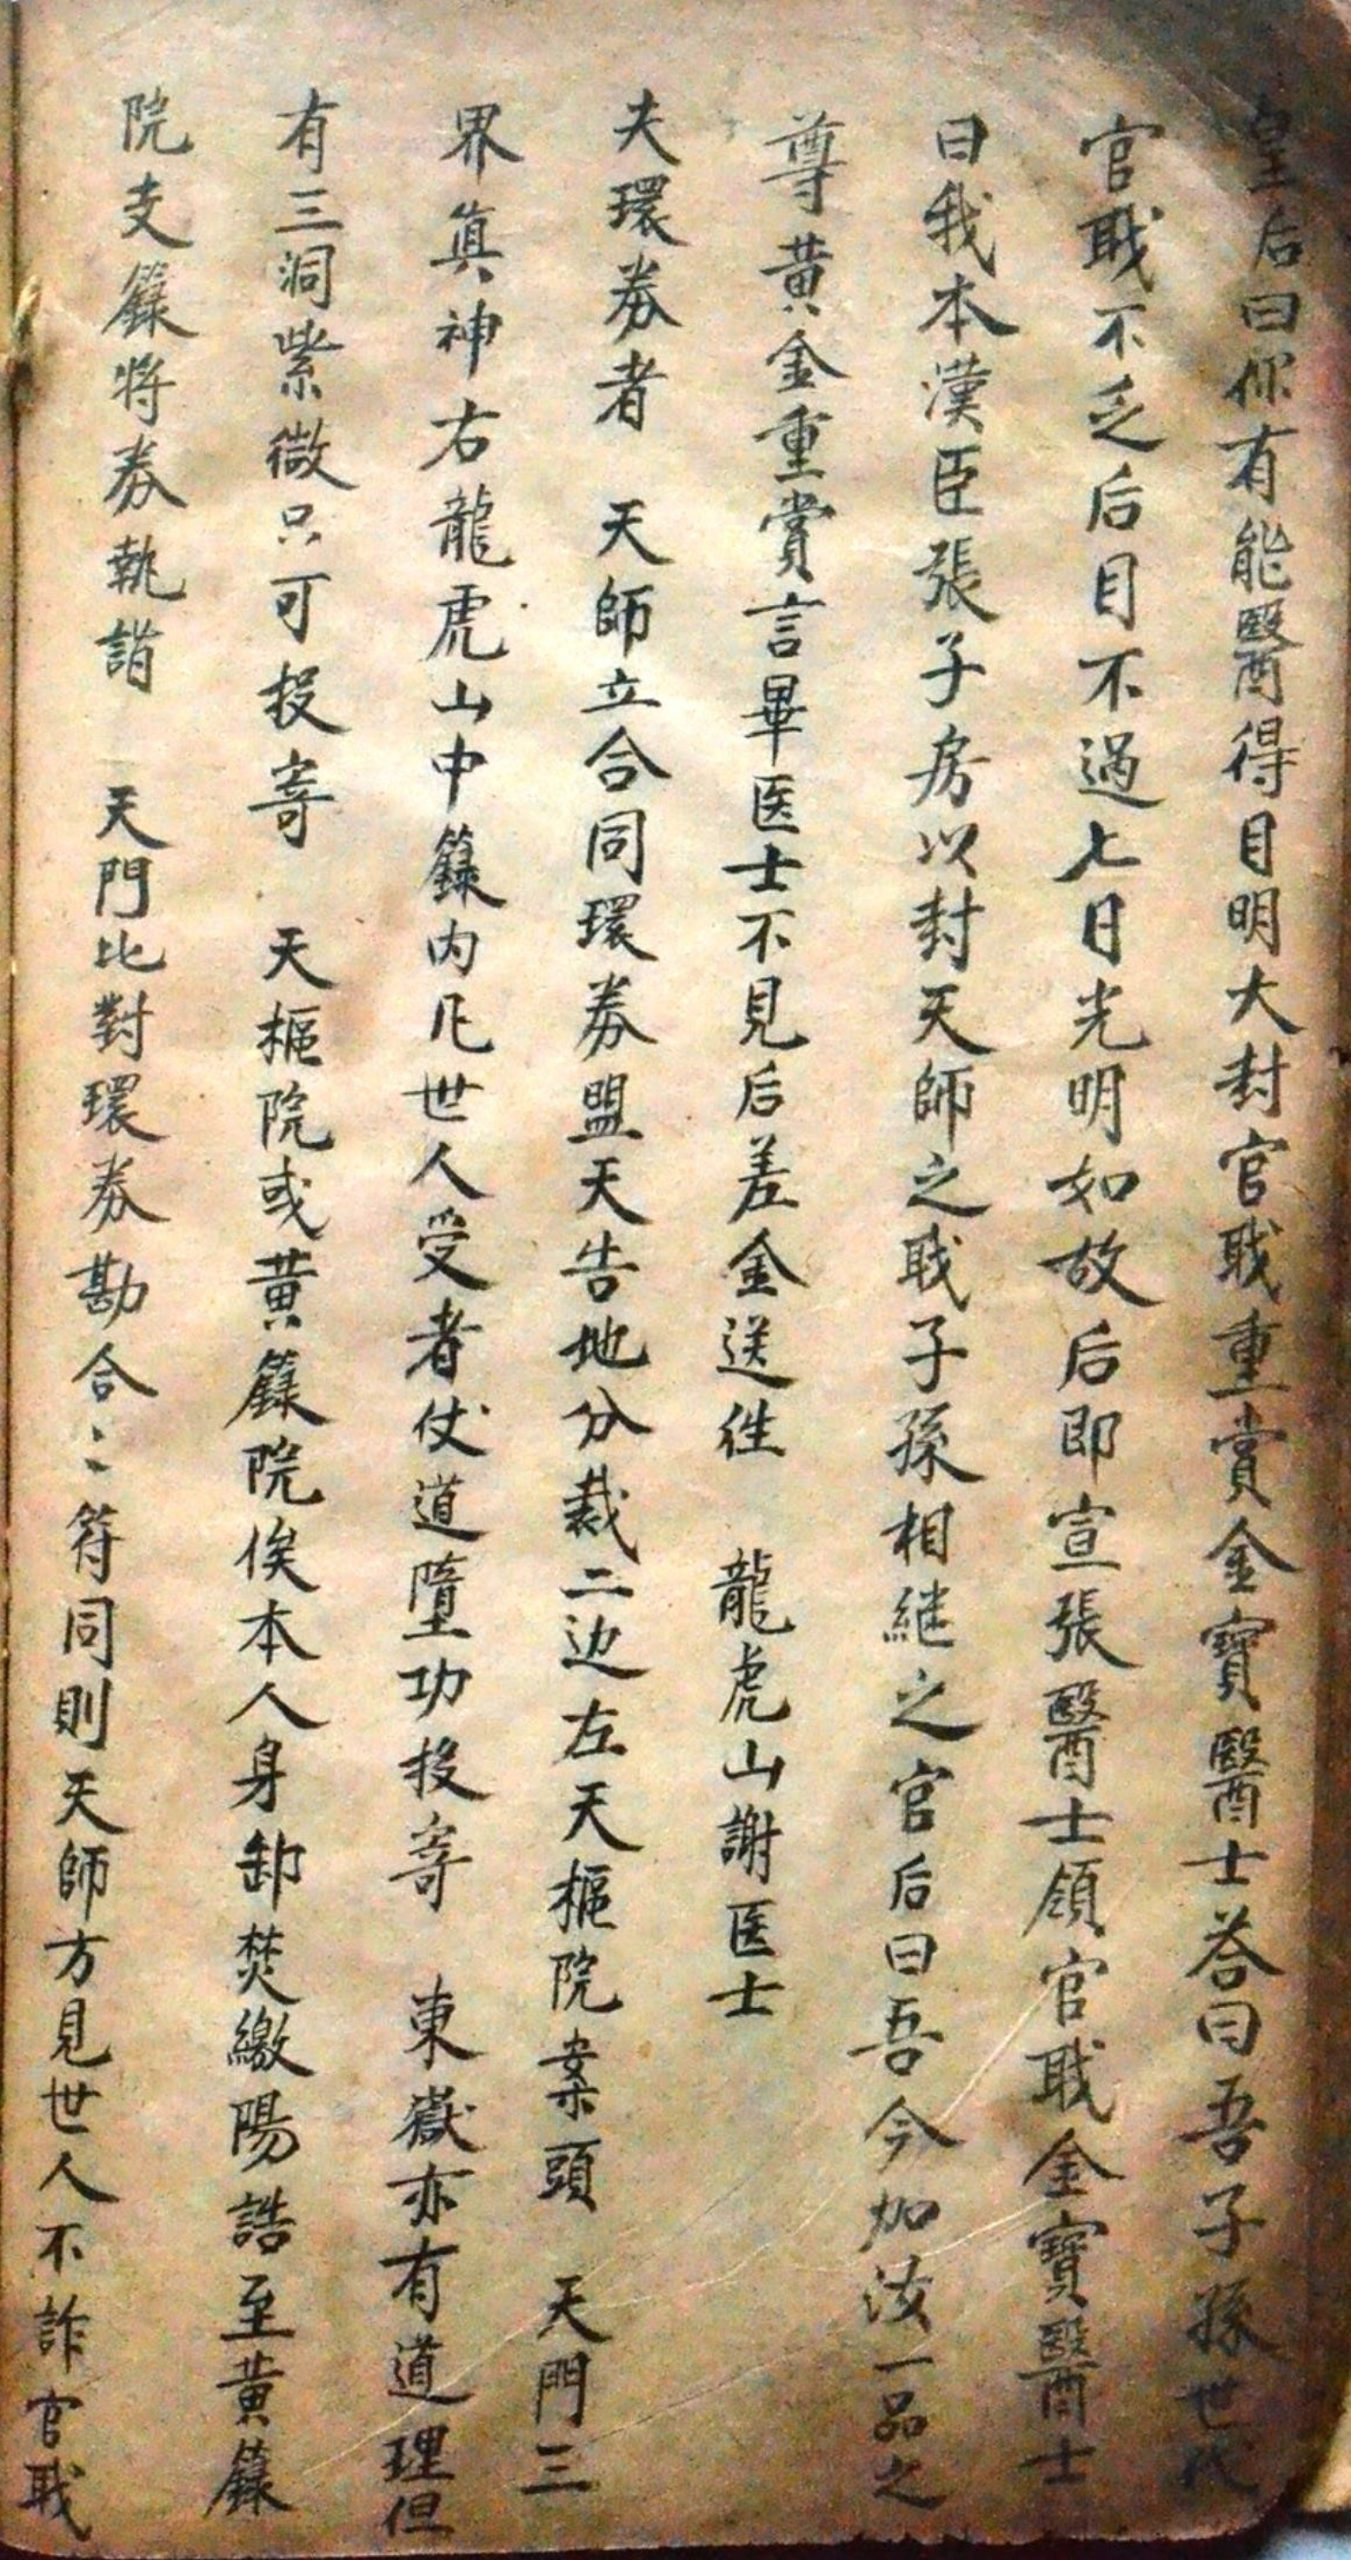 皇后曰你有能醫得目明大封官職重賞金寶醫士荅曰吾子孫世代
官職不乏后目不過七日光明如故后即宣張醫士領官職金寶醫士
曰我本漢臣張子房以封天師之職子孫相継之官后曰吾今加汝一品之
尊黄金重賞言畢医士不見后差金送徃 龍虎山謝医士
夫環券者 天師立合同環券盟天告地分裁二边左天樞院案頭 天門三
界真神右龍虎山中籙内凡世人受者仗道墮功投寄 東嶽亦有道理但
有三洞紫微只可投寄 天樞院或黄籙院俟本人身卸焚繳陽誥至黄籙
院支籙将券執詣 天門比對環券勘合〻符同則天師方見世人不詐官職